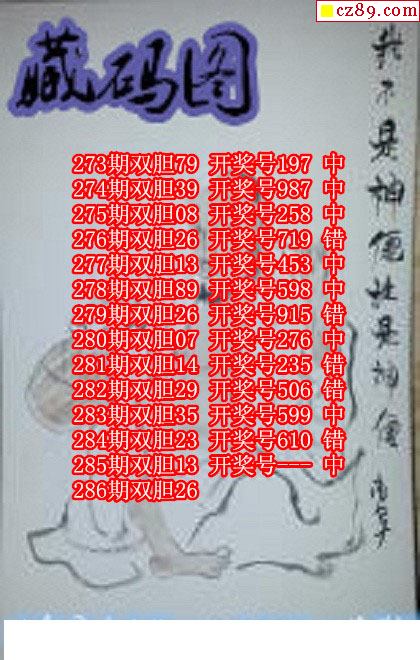 cz89.com
藏码图
273期双胆79 开奖号197 中
274期双胆39 开奖号987 中
275期双胆08 开奖号258 中
276期双胆26 开奖号719 错
277期双胆13 开奖号453 中
278期双胆89 开奖号598 中
279期双胆26 开奖号915 错
280期双胆07 开奖号276 中
281期双胆14 开奖号235 错
282期双胆29 开奖号506 错
283期双胆35 开奖号599 中
284期双胆23 开奖号610 错
285期双胆13 开奖号--- 中
286期双胆26
我不是神便是神